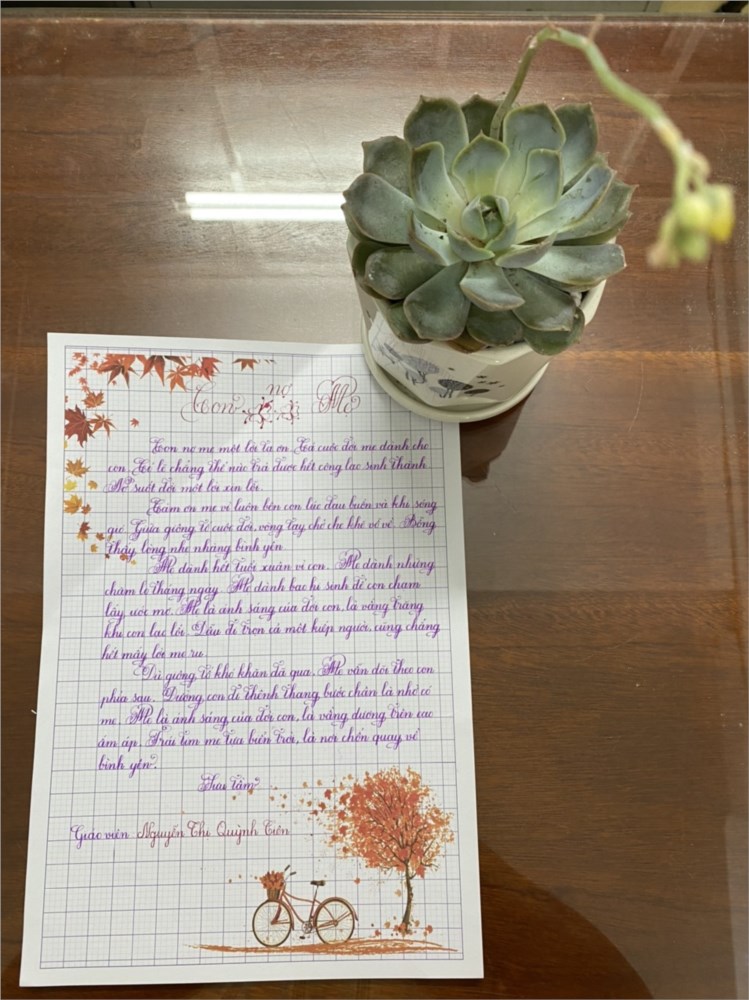 Con nợ Mẹ
Con nợ mẹ một lời tạ ơn. Cả cuộc đời mẹ dành cho
con. Có lẽ chẳng thể nào trả được hết công lao sinh thành
Nợ suốt đời một lời xin lỗi.
Cảm ơn mẹ vì luôn bên con lúc đau buồn và khi sóng
gió. Giữa giông tố cuộc đời, vòng tay chở che khẽ vỗ về. Bỗng
thấy lòng nhẹ nhàng bình yên
Mẹ dành hết tuổi xuân vì con. Mẹ dành những
chăm lo tháng ngày. Mẹ dành bao hi sinh để con chạm
lấy ước mơ. Mẹ là ánh sáng của đời con, là vầng trăng
khi con lạc lối. Dẫu đi trọn cả một kiếp người, cũng chẳng
hết mấy lời mẹ ru.
Dù giông tố khó khăn đã qua. Mẹ vẫn dõi theo con
phía sau. Đường con đi thênh thang, bước chân là nhờ có
mẹ. Mẹ là ánh sáng của đời con, là vầng dương trên cao
ấm áp. Trái tim mẹ tựa biển trời, là nơi chốn quay về
bình yên.
Sưu tầm
Giáo viên Nguyễn Thị Quỳnh Tiên